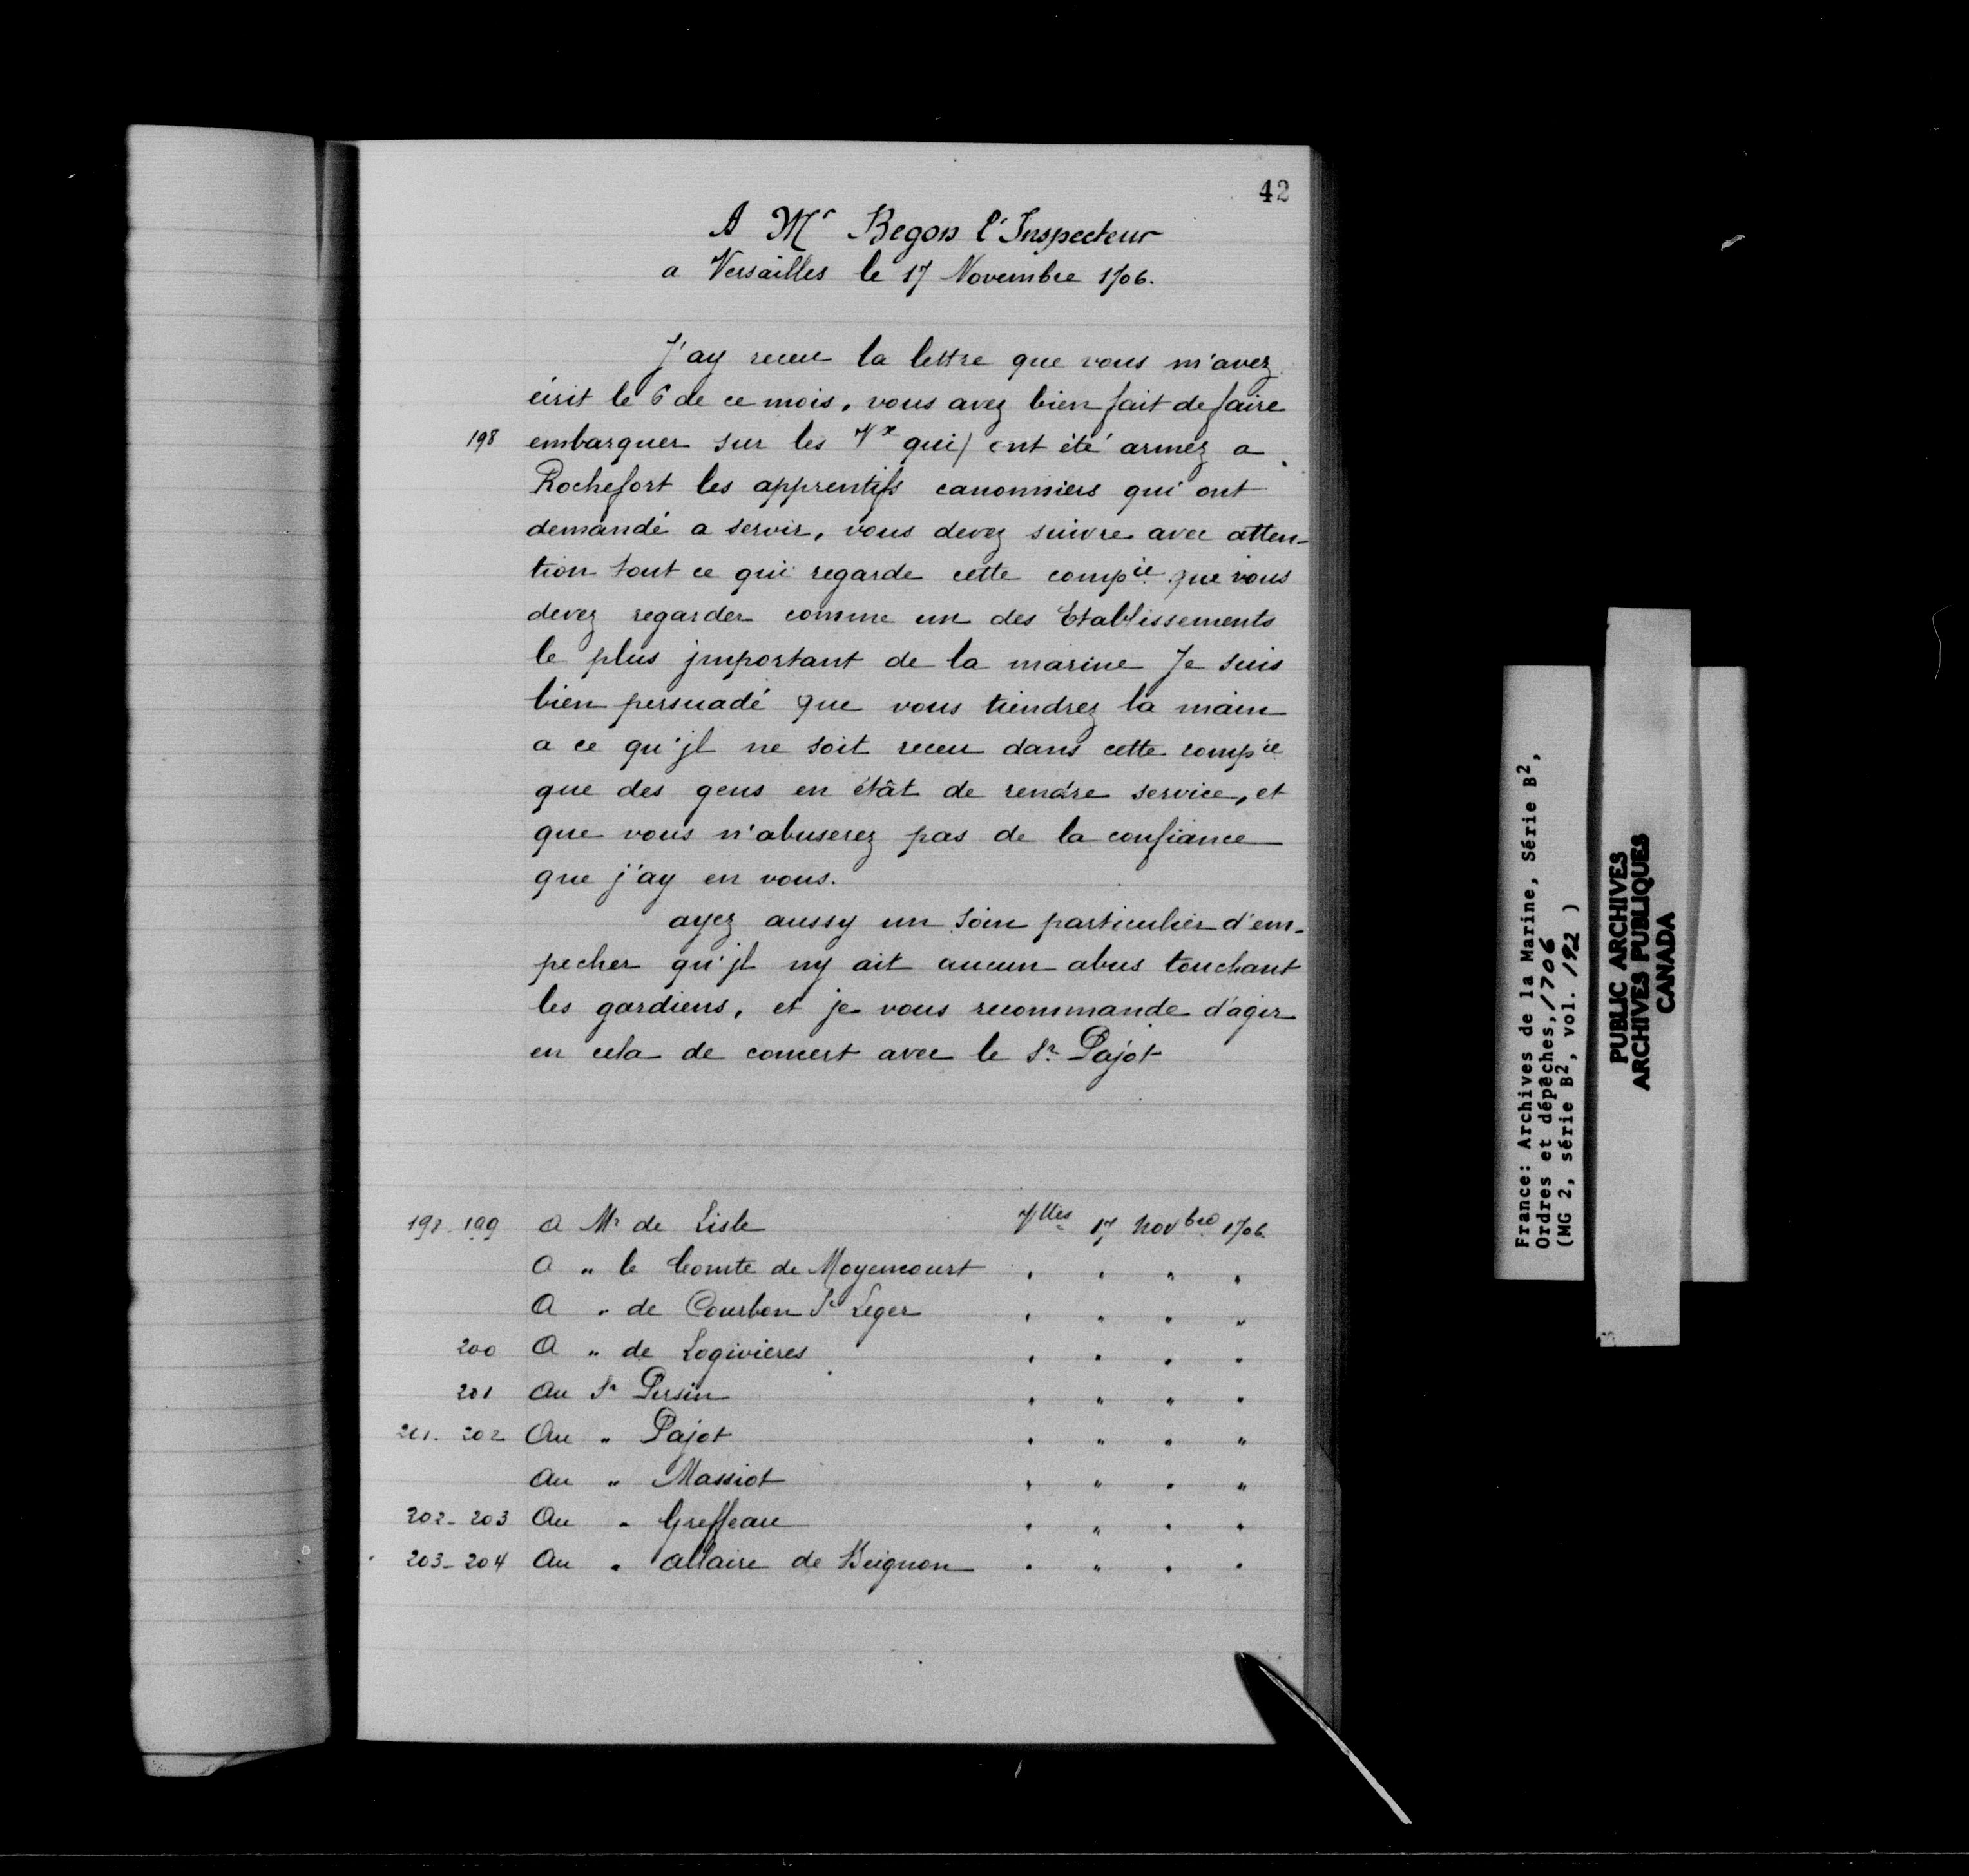 42
A Mr Begon l'Inspecteur
a Versailles le 17 Novembre 1706.
J'ay receu la lettre que vous m'avez
écrit le 6 de ce mois, vous avez bien fait de faire
198 embarquer sur les Vx qui) ont été armez a
Rochefort les apprentifs canonniers qui ont
demandé a servir, vous devez suivre avec atten-
tion tout ce qui regarde cette compie que vous
devez regarder comme un des Etablissements
le plus jmportant de la marine Je suis
bien persuadé que vous tiendrez la main
a ce qu'jl ne soit receu dans cette compie
que des gens en étât de rendre service, et
que vous n'abuserez pas de la confiance
que j'ay en vous.
ayez aussy un soin particulier d'em-
pecher qu'jl ny ait aucun abus touchant
les gardiens, et je vous recommande d'agir
en cela de concert avec le Sr Pajot
198-199 A Mr de Lisle Vlles 17 Novbre 1706.
A " le Comte de Moyencourt " " " "
A " de Courbon St Leger " " " "
200 A " de Logivieres " " " "
201 Au Sr Persin " " " "
201-202 Au " Pajot " " " "
Au " Massiot " " " "
202-203 Au " Greffeau " " " "
203-204 Au " allaire de Beignon " " " "
France: Archives de la Marine, Série B2,
Ordres et dépêches, 1706
(MG 2, série B2, vol. 192 )
PUBLIC ARCHIVES
ARCHIVES PUBLIQUES
CANADA